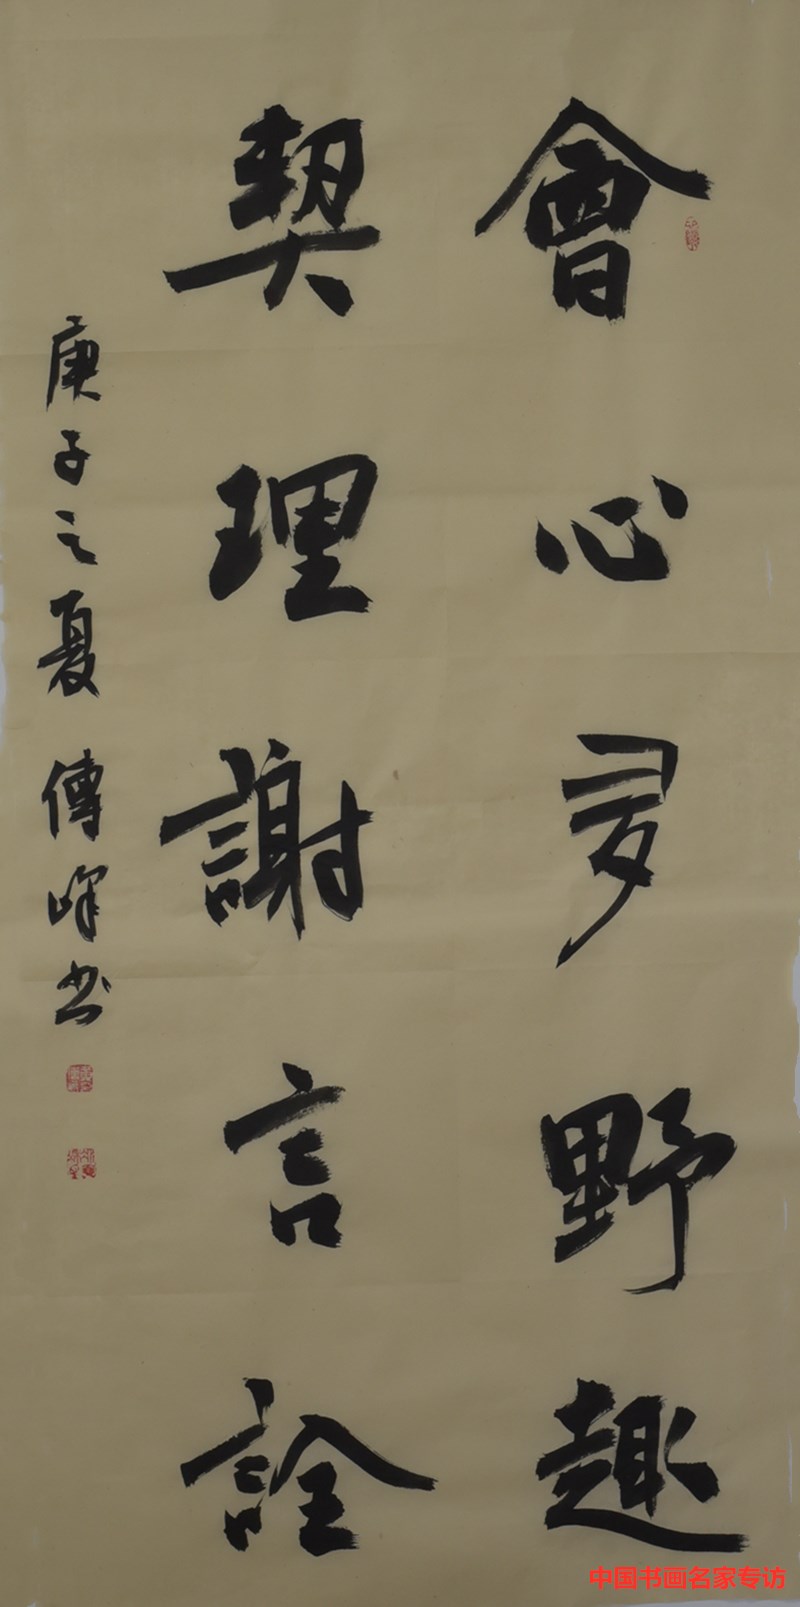 會心多野趣
契理謝言詮
庚子之夏 傳峰书
中国书画名家专访